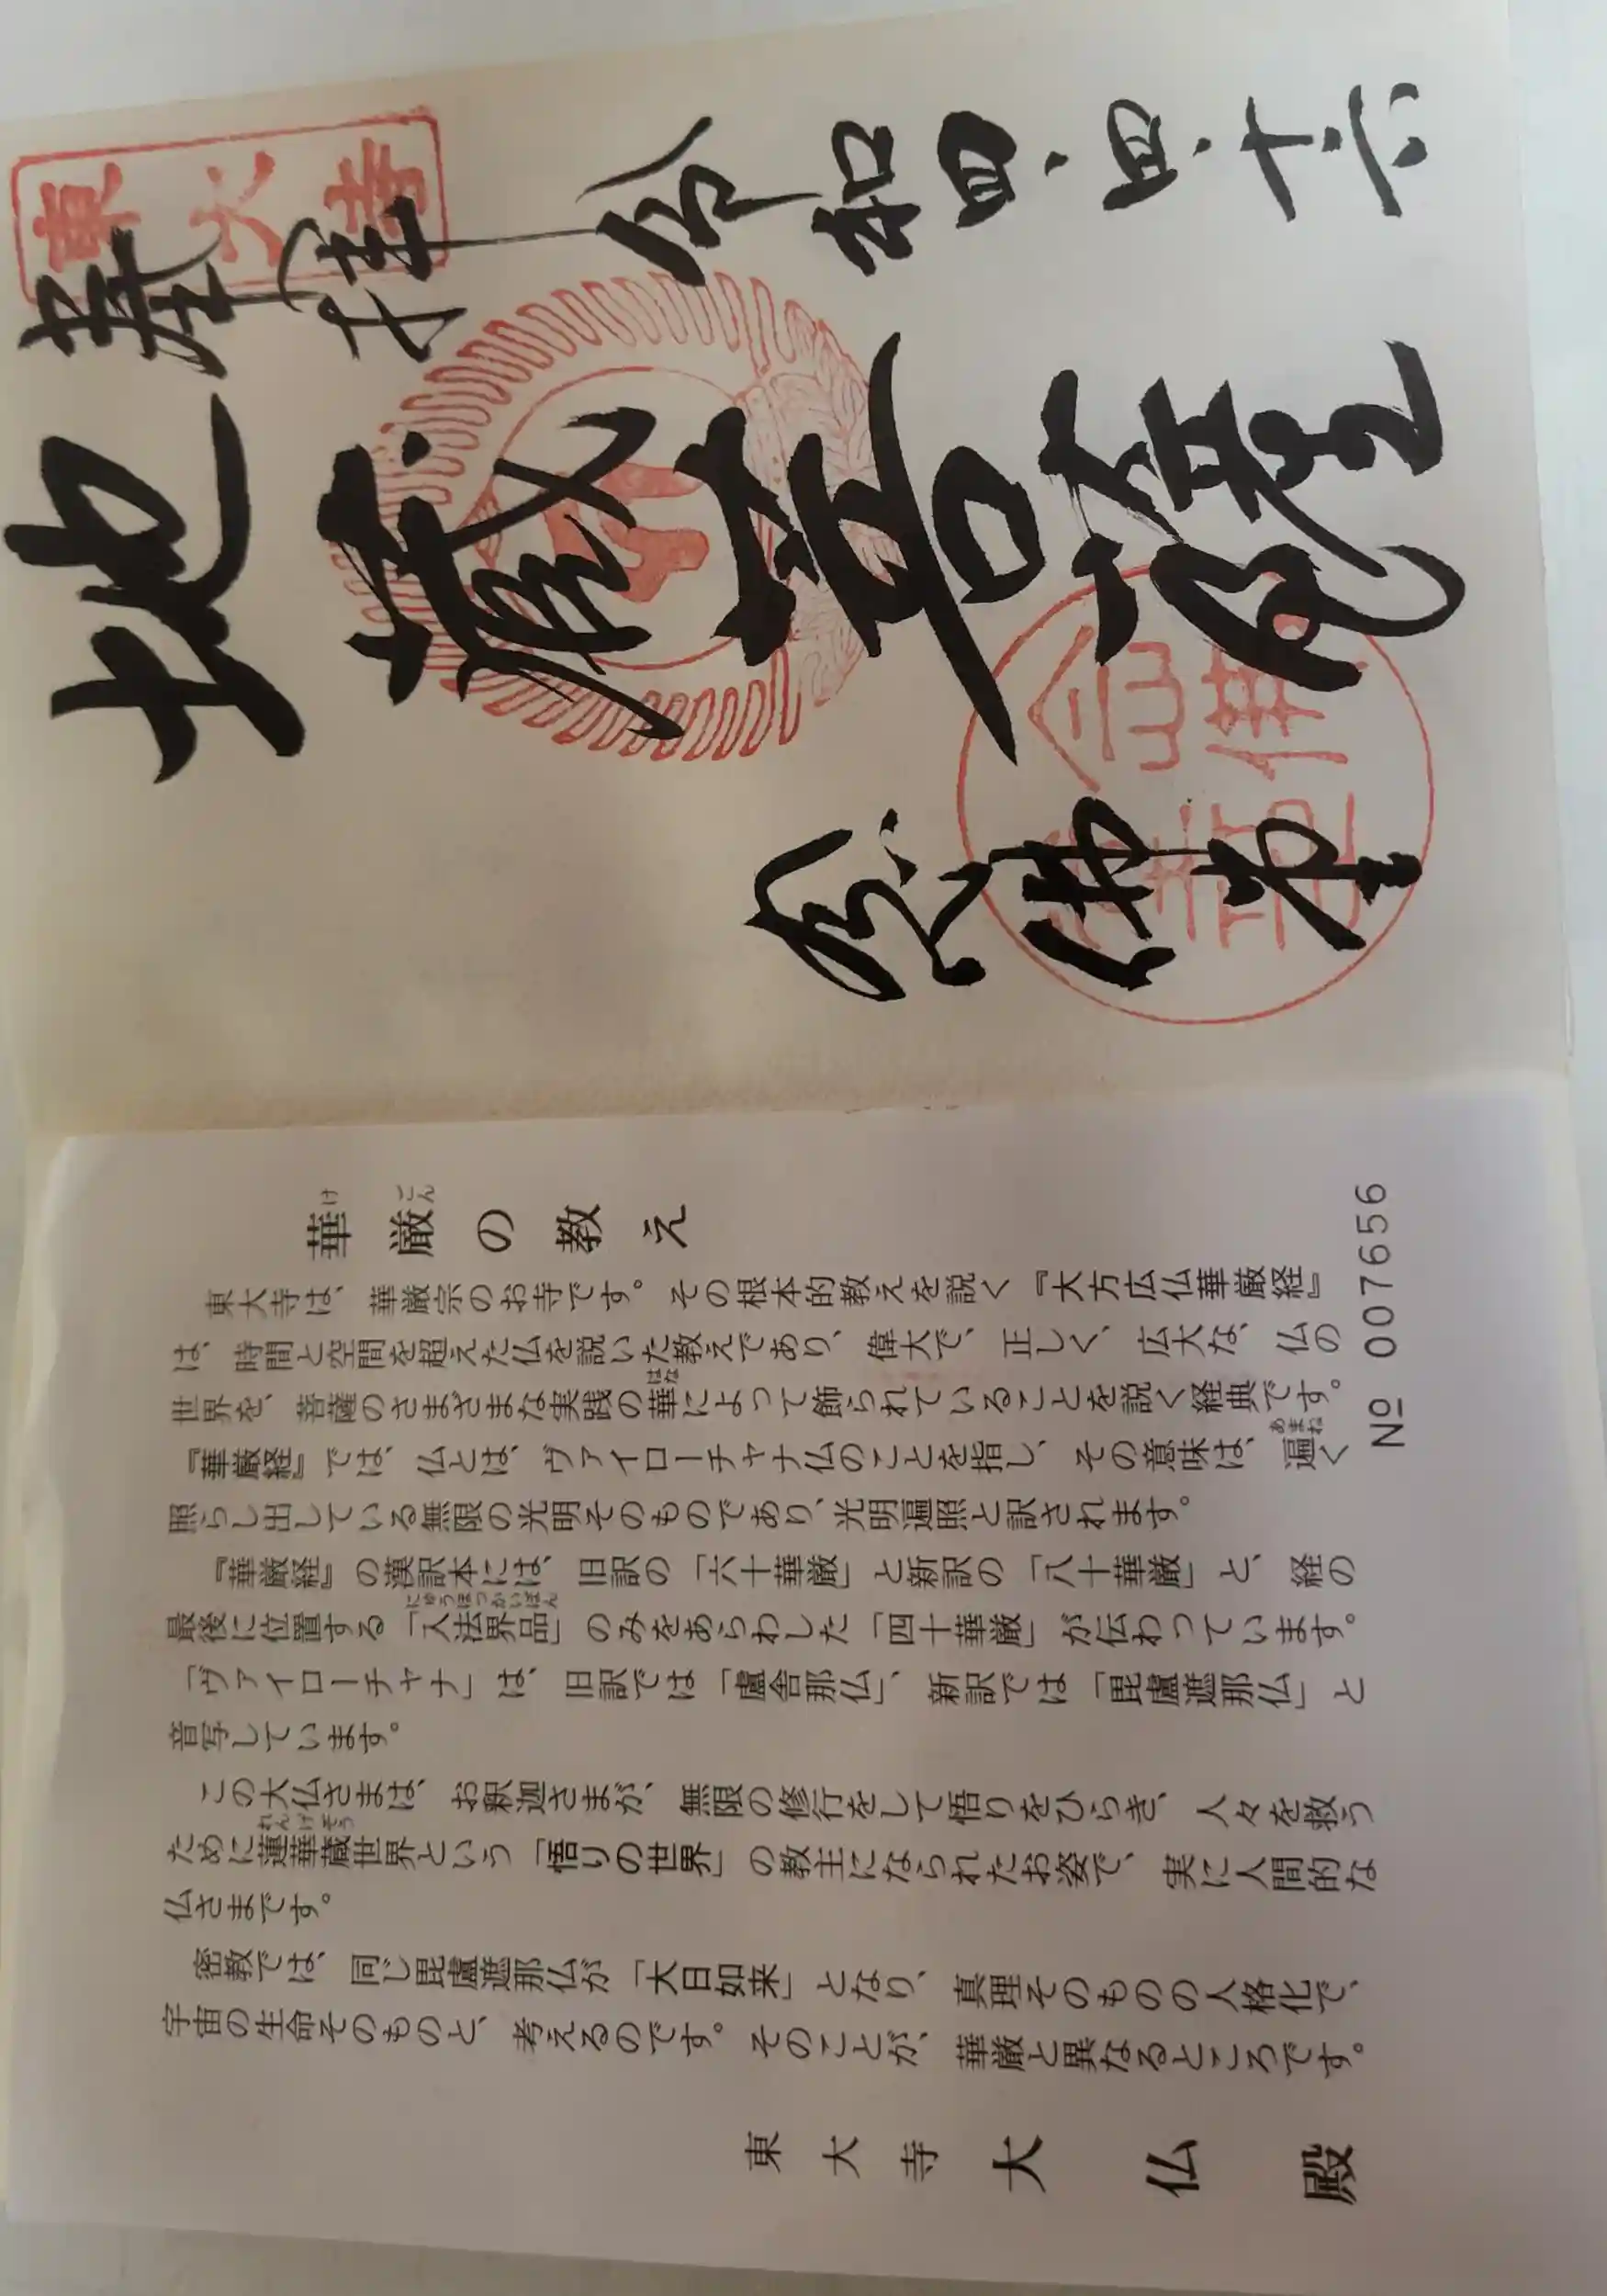 奉拝
令和四、四、十六
地蔵菩薩
念佛堂
東大寺
華厳の教え
東大寺は、華厳宗のお寺です。その根本的教えを説く『大方広仏華厳経』
は、時間と空間を超えた仏を説いた教えであり、偉大で、正しく、広大な、仏の
世界を、菩薩のさまざまな実践の華によって飾られていることを説く経典です。
『華厳経』では、仏とは、ヴァイローチャナ仏のことを指し、その意味は、遍く
照らし出している無限の光明そのものであり、光明遍照と訳されます。
『華厳経』の漢訳本には、旧訳の「六十華厳」と新訳の「八十華厳」と、経の
最後に位置する「入法界品」のみをあらわした「四十華厳」が伝わっています。
「ヴァイローチャナ」は、旧訳では「盧舎那仏」、新訳では「毘盧遮那仏」と
音写しています。
この大仏さまは、お釈迦さまが、無限の修行をして悟りをひらき、人々を救う
ために蓮華蔵世界という「悟りの世界」の教主になられたお姿で、実に人間的な
仏さまです。
密教では、同じ毘盧遮那仏が「大日如来」となり、真理そのものの人格化で、
宇宙の生命そのものと、考えるのです。そのことが、華厳と異なるところです。
東大寺 大仏殿
№ 007656